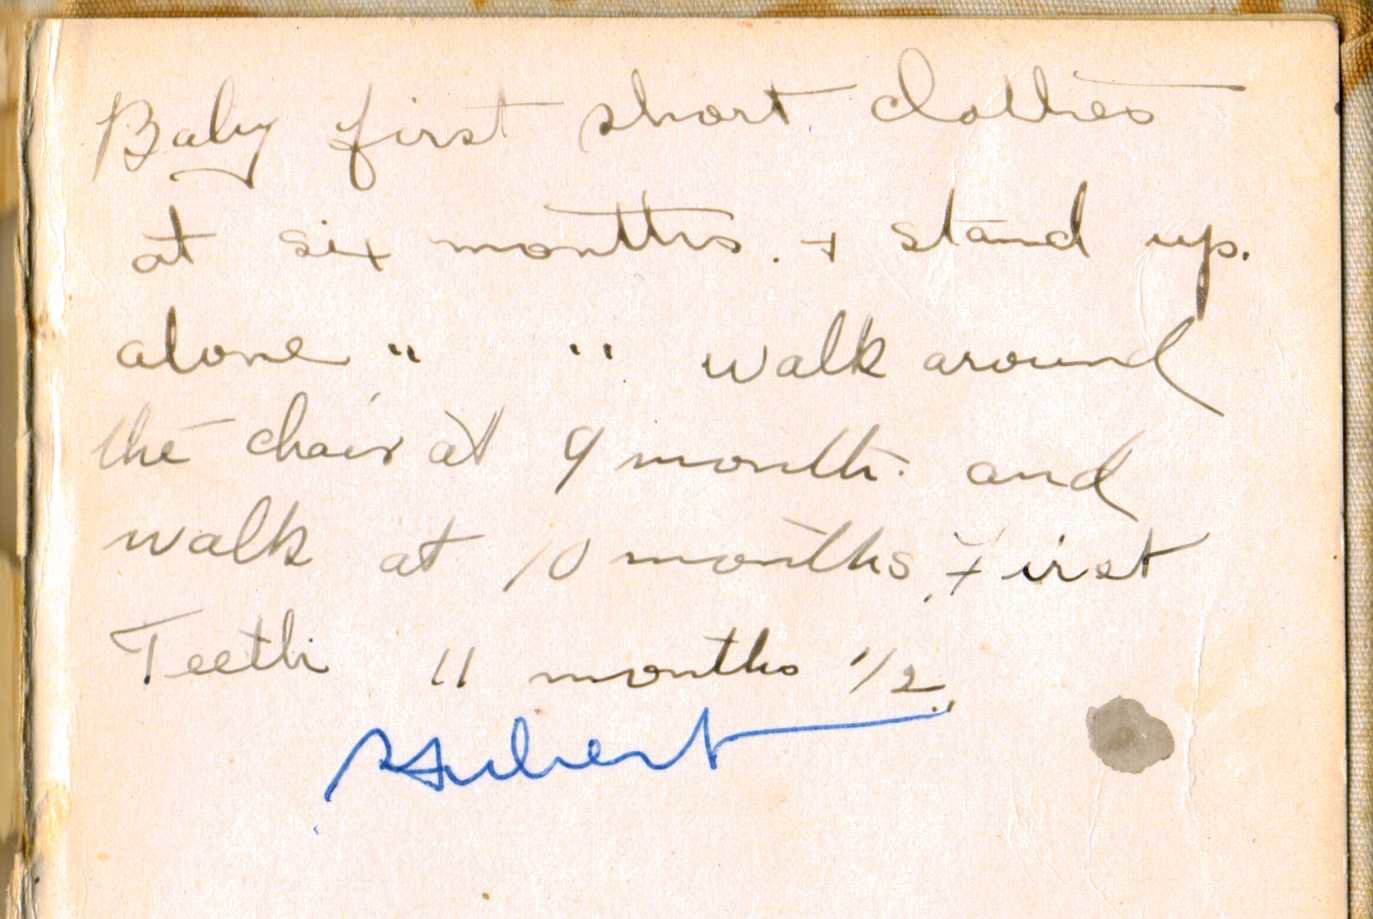 Baby first short clothes
at six months. + stand up.
alone " " walk around
the chair at 9 month. and
walk at 10 months, First
Teeth 11 months 1/2.
Hubert